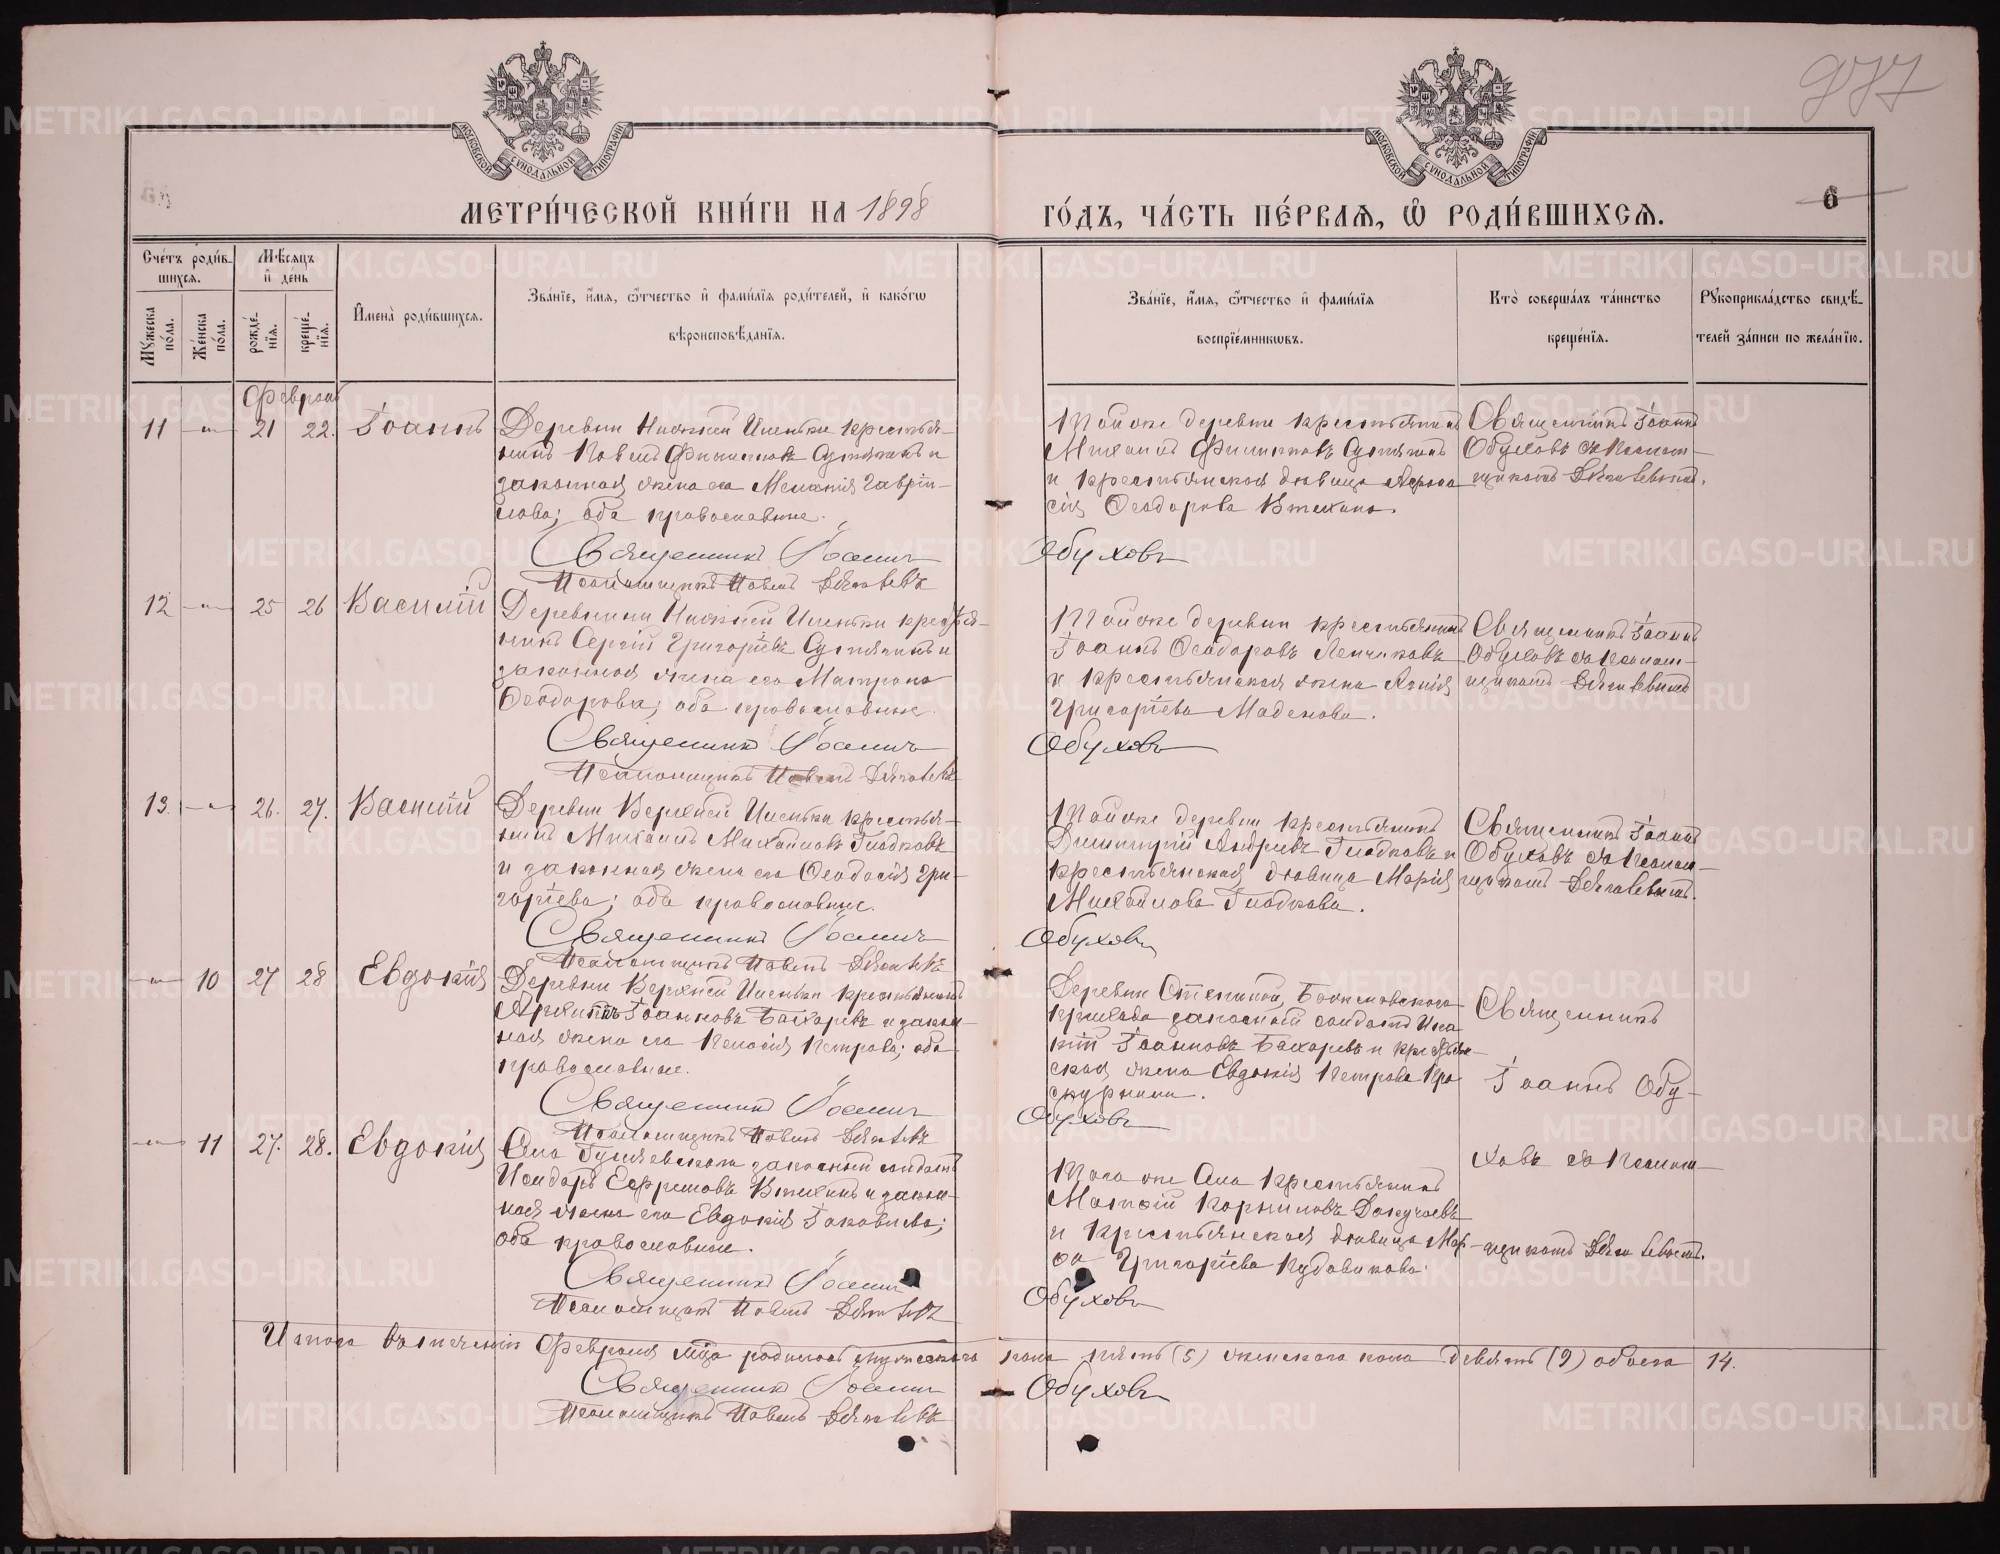 977
МОСКОВСКОЙ СУНОДАЛЬНОЙ ТИПОГРАФІИ
МОСКОВСКОЙ СУНОДАЛЬНОЙ ТИПОГРАФІИ
6
МЕТРИ́ЧЕСКОЙ КНИ́ГИ НА 1898
ГО́ДЪ, ЧА́СТЬ ПЕ́РВАѦ, Ѡ РОДИ́ВШИХСѦ.
Сче́тъ роди́вшихсѧ.
Мѣ́сѧцъ и де́нь
Мꙋжеска по́ла.
Же́нска по́ла.
рожде́нїѧ.
креще́нїѧ.
Имена̀ роди́вшихсѧ.
Зва́нїе, и́мѧ, ѻ́тчество и фами́лїѧ роди́телей, и како́гѡ
вѣроисповѣ́данїѧ.
Зва́нїе, и́мѧ, ѻ́тчество и фами́лїѧ
воспрїе́мникѡвъ.
Кто̀ соверша́лъ та́инство
креще́нїѧ.
Рꙋкоприкла́дство свидѣ́-
телей за́писи по жела́нїю.
Февраль
11 21 22. Іоаннъ
Деревни Нижней Иленьки крестья-
нинъ Павелъ Филипповъ и
законная жена его Меланія Гаврі-
лова; оба православные.
Священникъ Іоаннъ
Обуховъ
Псаломщикъ Павелъ
Той же деревни крестьянинъ
Михаилъ Филипповъ
и крестьянская дѣвица
сія Ѳеодорова Втехина.
Священникъ Іоаннъ
Обуховъ съ Псалом-
щикомъ
12 25 26 Василій
Деревни Нижней Иленьки крестья-
нинъ Сергій Григорьевъ и
законная жена его Матрона
Ѳеодорова; оба православные.
Священникъ Іоаннъ
Обуховъ
Псаломщикъ Павелъ
Той же деревни крестьянинъ
Іоаннъ Ѳеодоровъ
и крестьянская жена
Григоріева
Священникъ Іоаннъ
Обуховъ съ Псалом-
щикомъ
13. 26. 27. Василій
Деревни Верхней Иленьки крестья-
нинъ Михаилъ Михайловъ Гладковъ
и законная жена его Ѳеодосія Гри-
горіева; оба православные.
Священникъ Іоаннъ
Обуховъ
Псаломщикъ Павелъ
Той же деревни крестьянинъ
Димитрій Андреевъ Гладковъ и
крестьянская дѣвица Марія
Михайлова Гладкова.
Священникъ Іоаннъ
Обуховъ съ Псалом-
щикомъ
10 27 28 Евдокія
Деревни Верхней Иленьки крестьянинъ
Архипъ Іоанновъ Бахаревъ и закон-
ная жена его Пелагія Петрова; оба
православные.
Священникъ Іоаннъ
Обуховъ
Псаломщикъ Павелъ
Деревни
прихода запасный солдатъ
Іоанновъ Бахаревъ и крестьян-
ская жена Евдокія Петрова Про-
скурнина.
Священникъ
Іоаннъ Обу-
ховъ съ Псалом-
щикомъ
11 27. 28. Евдокія
Села запасный солдатъ
Исидоръ Ефремовъ Втехинъ и закон-
ная жена его Евдокія Іаковлева;
оба православные.
Священникъ Іоаннъ
Обуховъ
Псаломщикъ Павелъ
Того же села крестьянинъ
Матѳій Корниловъ Докучаевъ
и крестьянская дѣвица Мар-
ѳа Григоріева Кудовикова.
Итого въ теченіи Февраля мца родилось мужескаго пола пять (5) женскаго пола девять (9) обоего 14.
Священникъ Іоаннъ
Обуховъ
Псаломщикъ Павелъ
METRIKI.GASO-URAL.RU